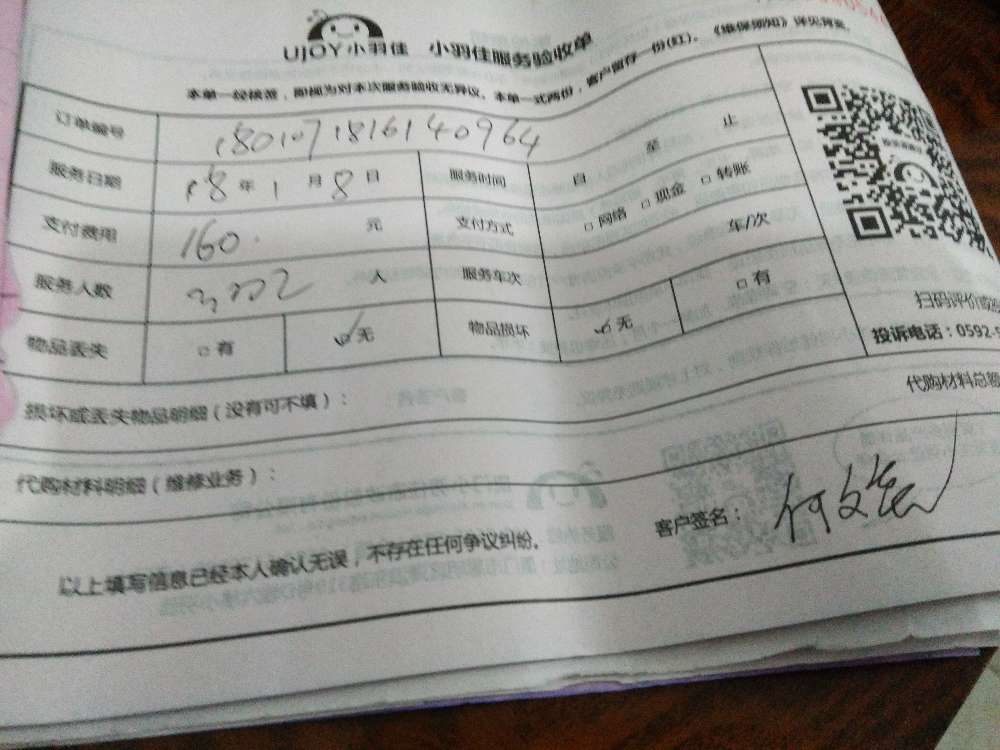 UJOY小羽佳 小羽佳服务验收单
本单一经核签，即视为对本次服务验收无异议。本单一式两份，客户留存一份(红)。《维保须知》详见背面。
订单编号 180107181616140964
服务日期 18年1月8日 服务时间 自 至 止
支付费用 160 元 支付方式 □网络 □现金 □转账
服务人数 人 服务车次 车/次
物品丢失 □有 ☑无 物品损坏 ☑无 □有
扫码评价
投诉电话：0592-
损坏或丢失物品明细（没有可不填）：
代购材料总额
代购材料明细（维修业务）：
以上填写信息已经本人确认无误，不存在任何争议纠纷。 客户签名：